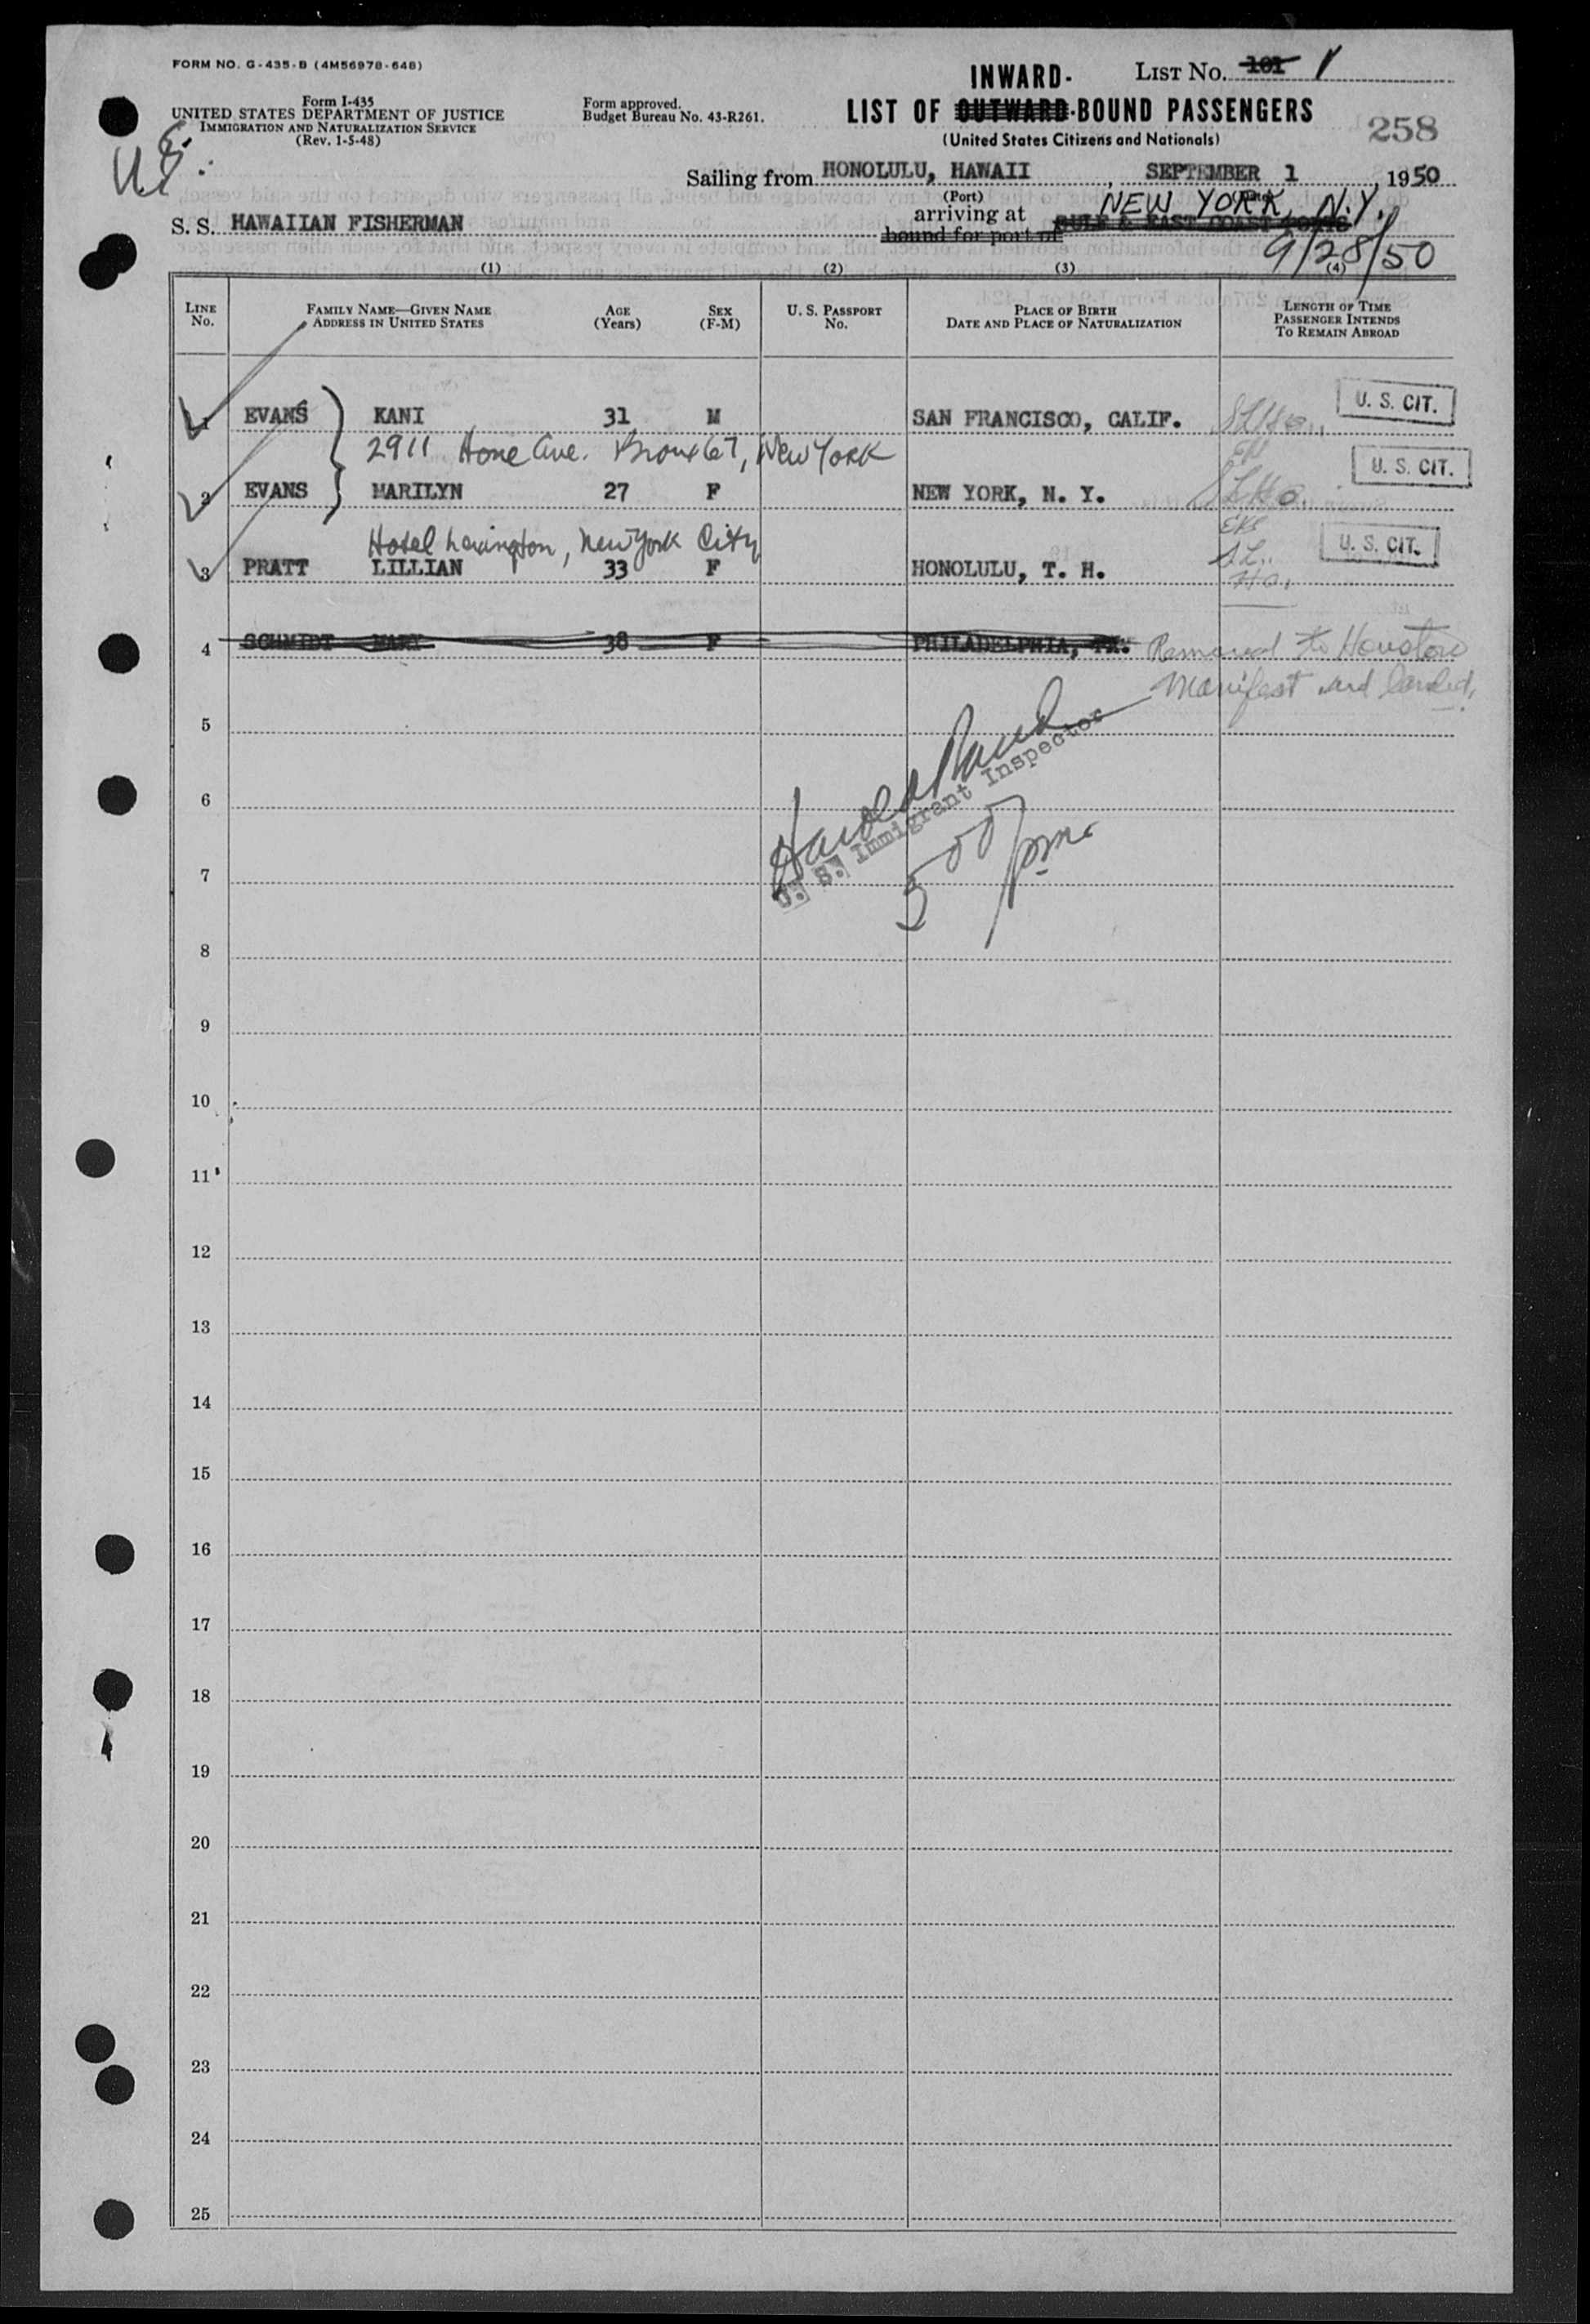 FORM NO. G-435-B (4M56978-648)
Form I-435
UNITED STATES DEPARTMENT OF JUSTICE
IMMIGRATION AND NATURALIZATION SERVICE
(Rev. 1-5-48)
Form approved.
Budget Bureau No. 43-R261.
INWARD-
LIST No. 101 1
LIST OF OUTWARD-BOUND PASSENGERS
(United States Citizens and Nationals)
258
Sailing from HONOLULU, HAWAII, SEPTEMBER 1, 1950
(Port)
arriving at NEW YORK, N.Y.
bound for port of GULF & EAST COAST PORTS
S. S. HAWAIIAN FISHERMAN
9/28/50
(1) (2) (3) (4)
LINE No.
FAMILY NAME—GIVEN NAME
ADDRESS IN UNITED STATES
AGE (Years)
SEX (F-M)
U. S. PASSPORT No.
PLACE OF BIRTH
DATE AND PLACE OF NATURALIZATION
LENGTH OF TIME
PASSENGER INTENDS
TO REMAIN ABROAD
1 EVANS KANI 31 M SAN FRANCISCO, CALIF. U. S. CIT.
2911 Hone Ave. Bronx 67, New York
2 EVANS MARILYN 27 F NEW YORK, N. Y. U. S. CIT.
Hotel Lexington, New York City
3 PRATT LILLIAN 33 F HONOLULU, T. H. U. S. CIT.
4 SCHMIDT MARY 38 F PHILADELPHIA, PA. Removed to Houston
Manifest and landed.
5
Harold
U. S. Immigrant Inspector
6
500 pm
7
8
9
10
11
12
13
14
15
16
17
18
19
20
21
22
23
24
25